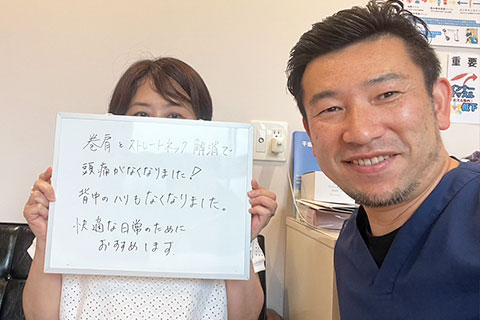 巻肩とストレートネック解消で
頭痛がなくなりました!
背中のハリもなくなりました。
快適な日常のために
おすすめします
重要